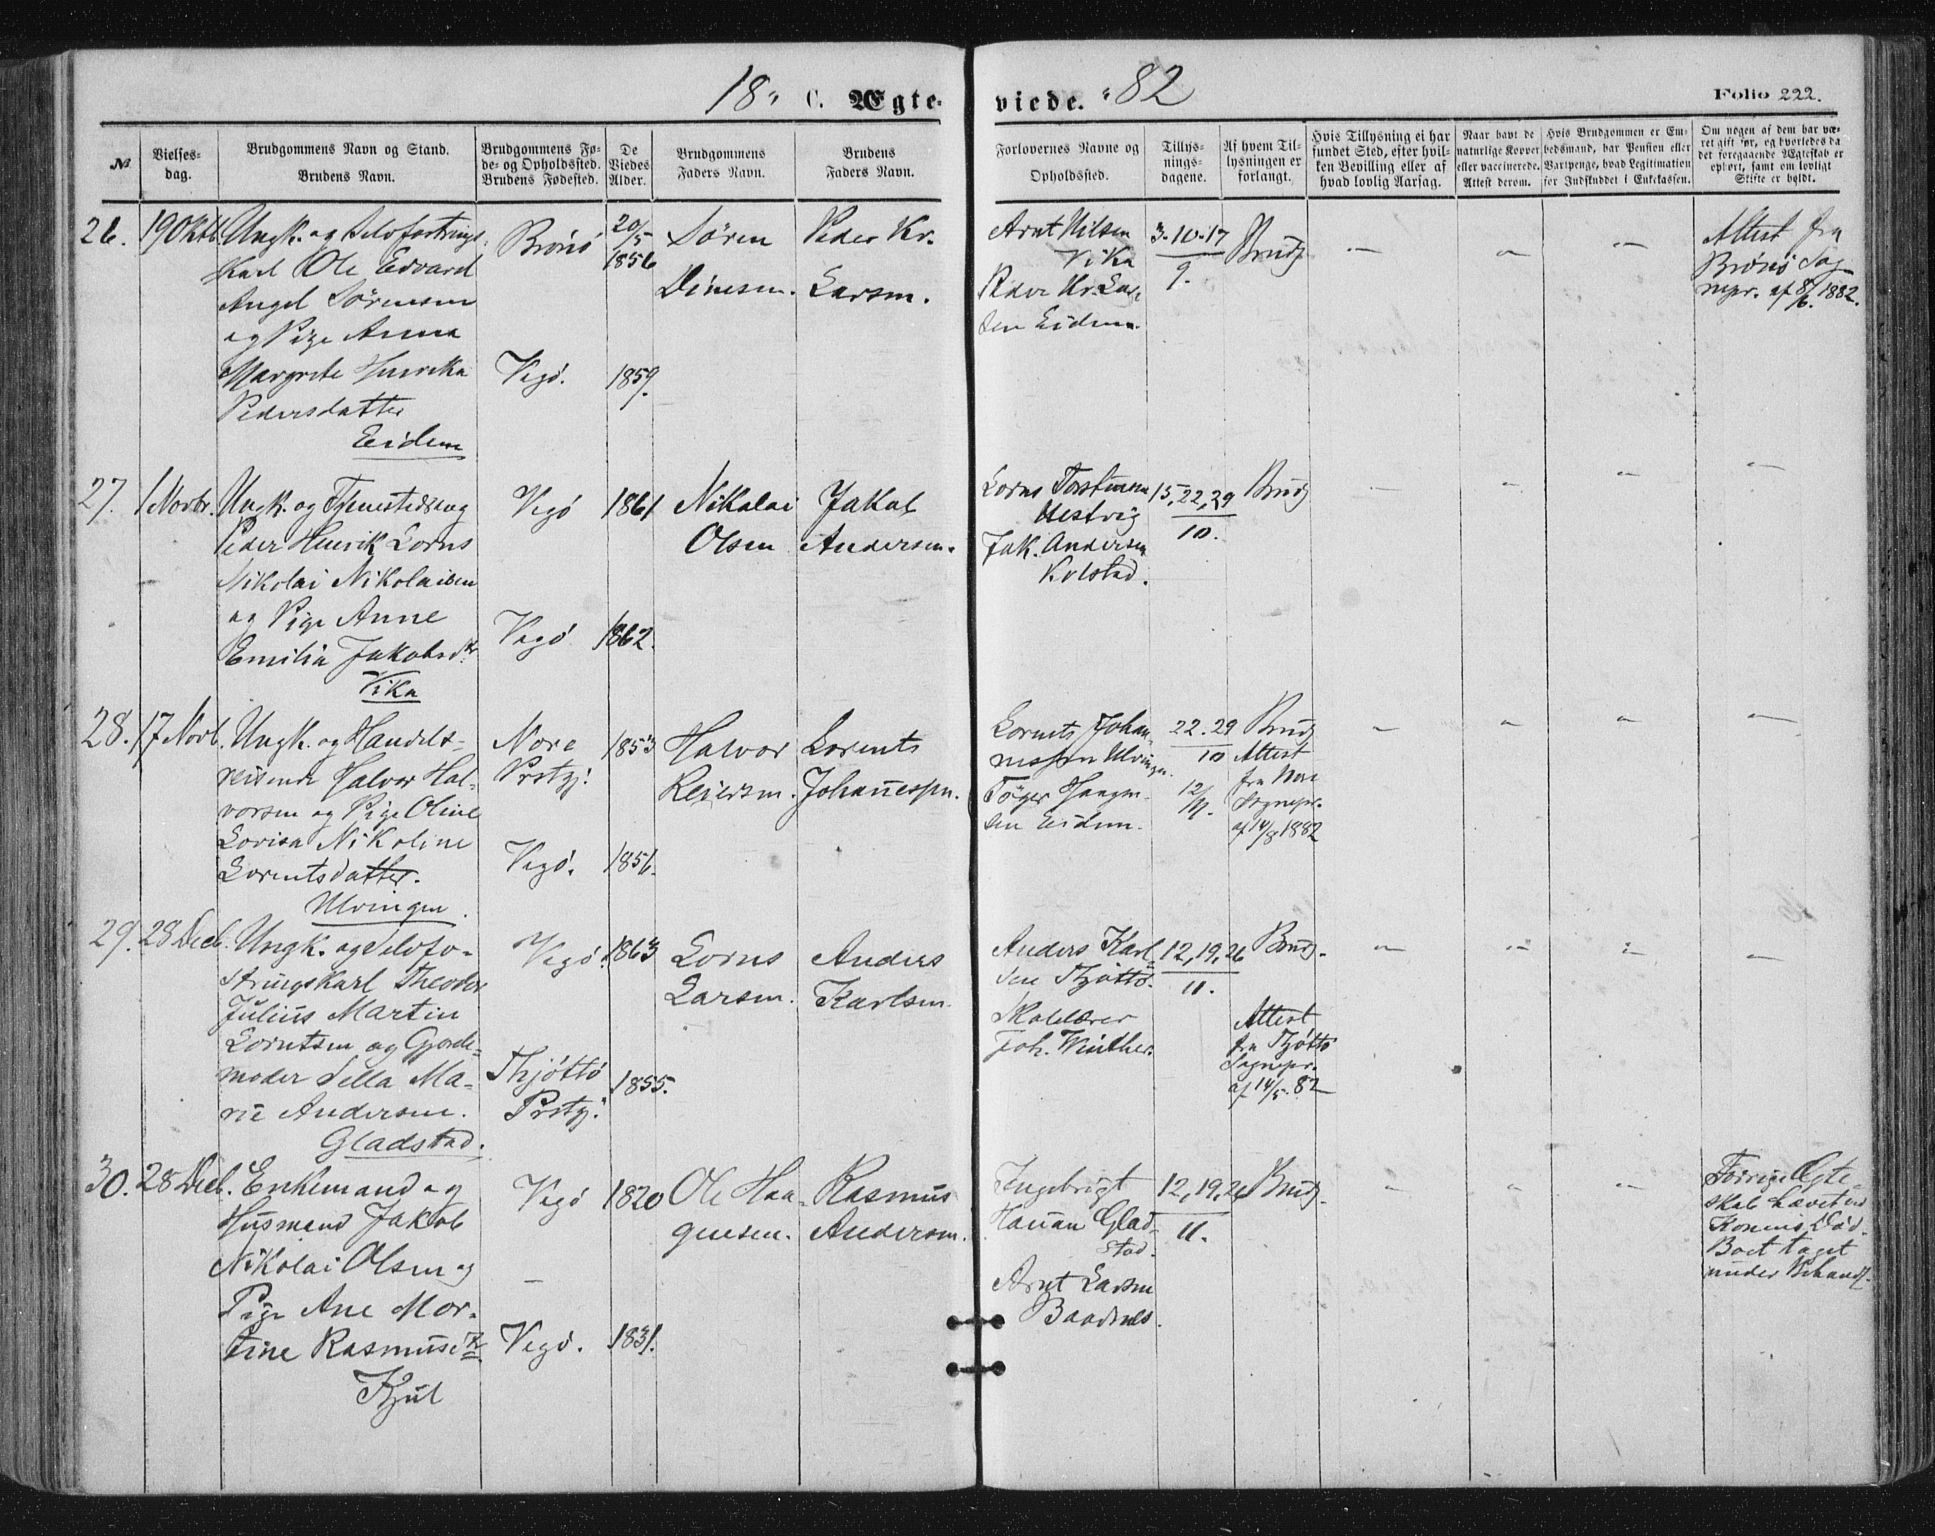 18" C. Ægteviede. "82
Folio 222.
№
Vielsesdag.
Brudgommens Navn og Stand.
Brudens Navn.
Brudgommens Føde- og Opholdsted.
Brudens Fødested.
De Viedes Alder.
Brudgommens
Faders Navn.
Brudens
Faders Navn.
Forlovernes Navne og
Opholdssted.
Tillysningsdagene.
Af hvem Tillysningen er forlangt.
Hvis Tillysning ei har fundet Sted, efter hvilken Bevilling eller af hvad lovlig Aarsag.
Naar havt de naturlige Kopper eller vaccinerede. Attest derom.
Hvis Brudgommen er Embedsmand, har Pension eller Vartpenge, hvad Legitimation for Indskuddet i Enkekassen.
Om nogen af dem har været gift før, og hvorledes da det foregaaende Ægteskab er ophørt, samt om lovligt Skifte er holdt.
26.
19 Oktb.
Ungk. og Selvfostrings
Karl Ole Edvard
Angel Sörensen
og Pige Anna
Margrete Henrika
Pedersdatter
Eidem
Brönö
Vegö.
20/5
1856
1859.
Sören
Dinesen.
Peder Kr.
Larsen.
Arnt Nilsen
Vika
Peder Kr. Lar-
sen Eidem.
3-10-17
9.
Brudg
—
"
—
Attest fra
Brönö Sog-
nepr. af 8/6. 1882.
27.
1 Novbr.
Ungk. og Tjenestedreng
Peder Henrik Lorns
Nikolai Nikolaisen
og Pige Anne
Emilia Jakobsdtr
Vika
Vegö
Vegö
1861
1862.
Nikolai
Olsen
Jakob
Andersen.
Lorns Torstensen
Nestvig
Jak. Andersen
Kolstad.
15, 22, 29
10.
Brudg
—
"
—
—
28.
17 Novb.
Ungk. og Handels-
reisende Halvor Hal-
vorsen og Pige Oline
Lovisa Nikoline
Lorentsdatter.
Ulvingen.
Nore
Prstgj:
Vegö.
1853
1856.
Halvor
Reiersen.
Lorents
Johannessen.
Lornts Johan-
nessen Ulvingen.
Töger Haagen-
sen Eidem.
22. 29
10
12/11.
Brudg
Attest
fra Nore
Sognepr.
af 14/8 1882
—
"
—
—
29.
28 Decb.
Ungk. og Selvfo-
stringskarl Theodor
Julius Martin
Lorntsen og Gjorde-
moder Sella Ma-
rie Andersen.
Gladstad.
Vegö.
Thjöttö
Prstgj:
1863
1855.
Lorns
Larsen.
Anders
Karlsen.
Anders Karl-
sen Tjöttö.
Skolelærer
Joh. Winther.
12, 19, 26
11.
Brudg.
Attest
fra Tjöttö
Sognepr.
af 14/5. 82
—
"
—
—
30.
28 Decb.
Enkemand og
Husmand Jakob
Nikolai Olsen og
Pige Ane Mor-
tine Rasmusdtr
Kjul
Vegö
—
Vegö.
1820
1831.
Ole Haa-
gensen.
Rasmus
Andersen.
Ingebrigt
Hansen Glad-
stad.
Arnt Larsen
Baadsnes.
12, 19, 26
11.
Brudg.
—
"
—
Forrige Ægte-
skab hævet ved
Konens Död.
Boet taget
under Behandl.